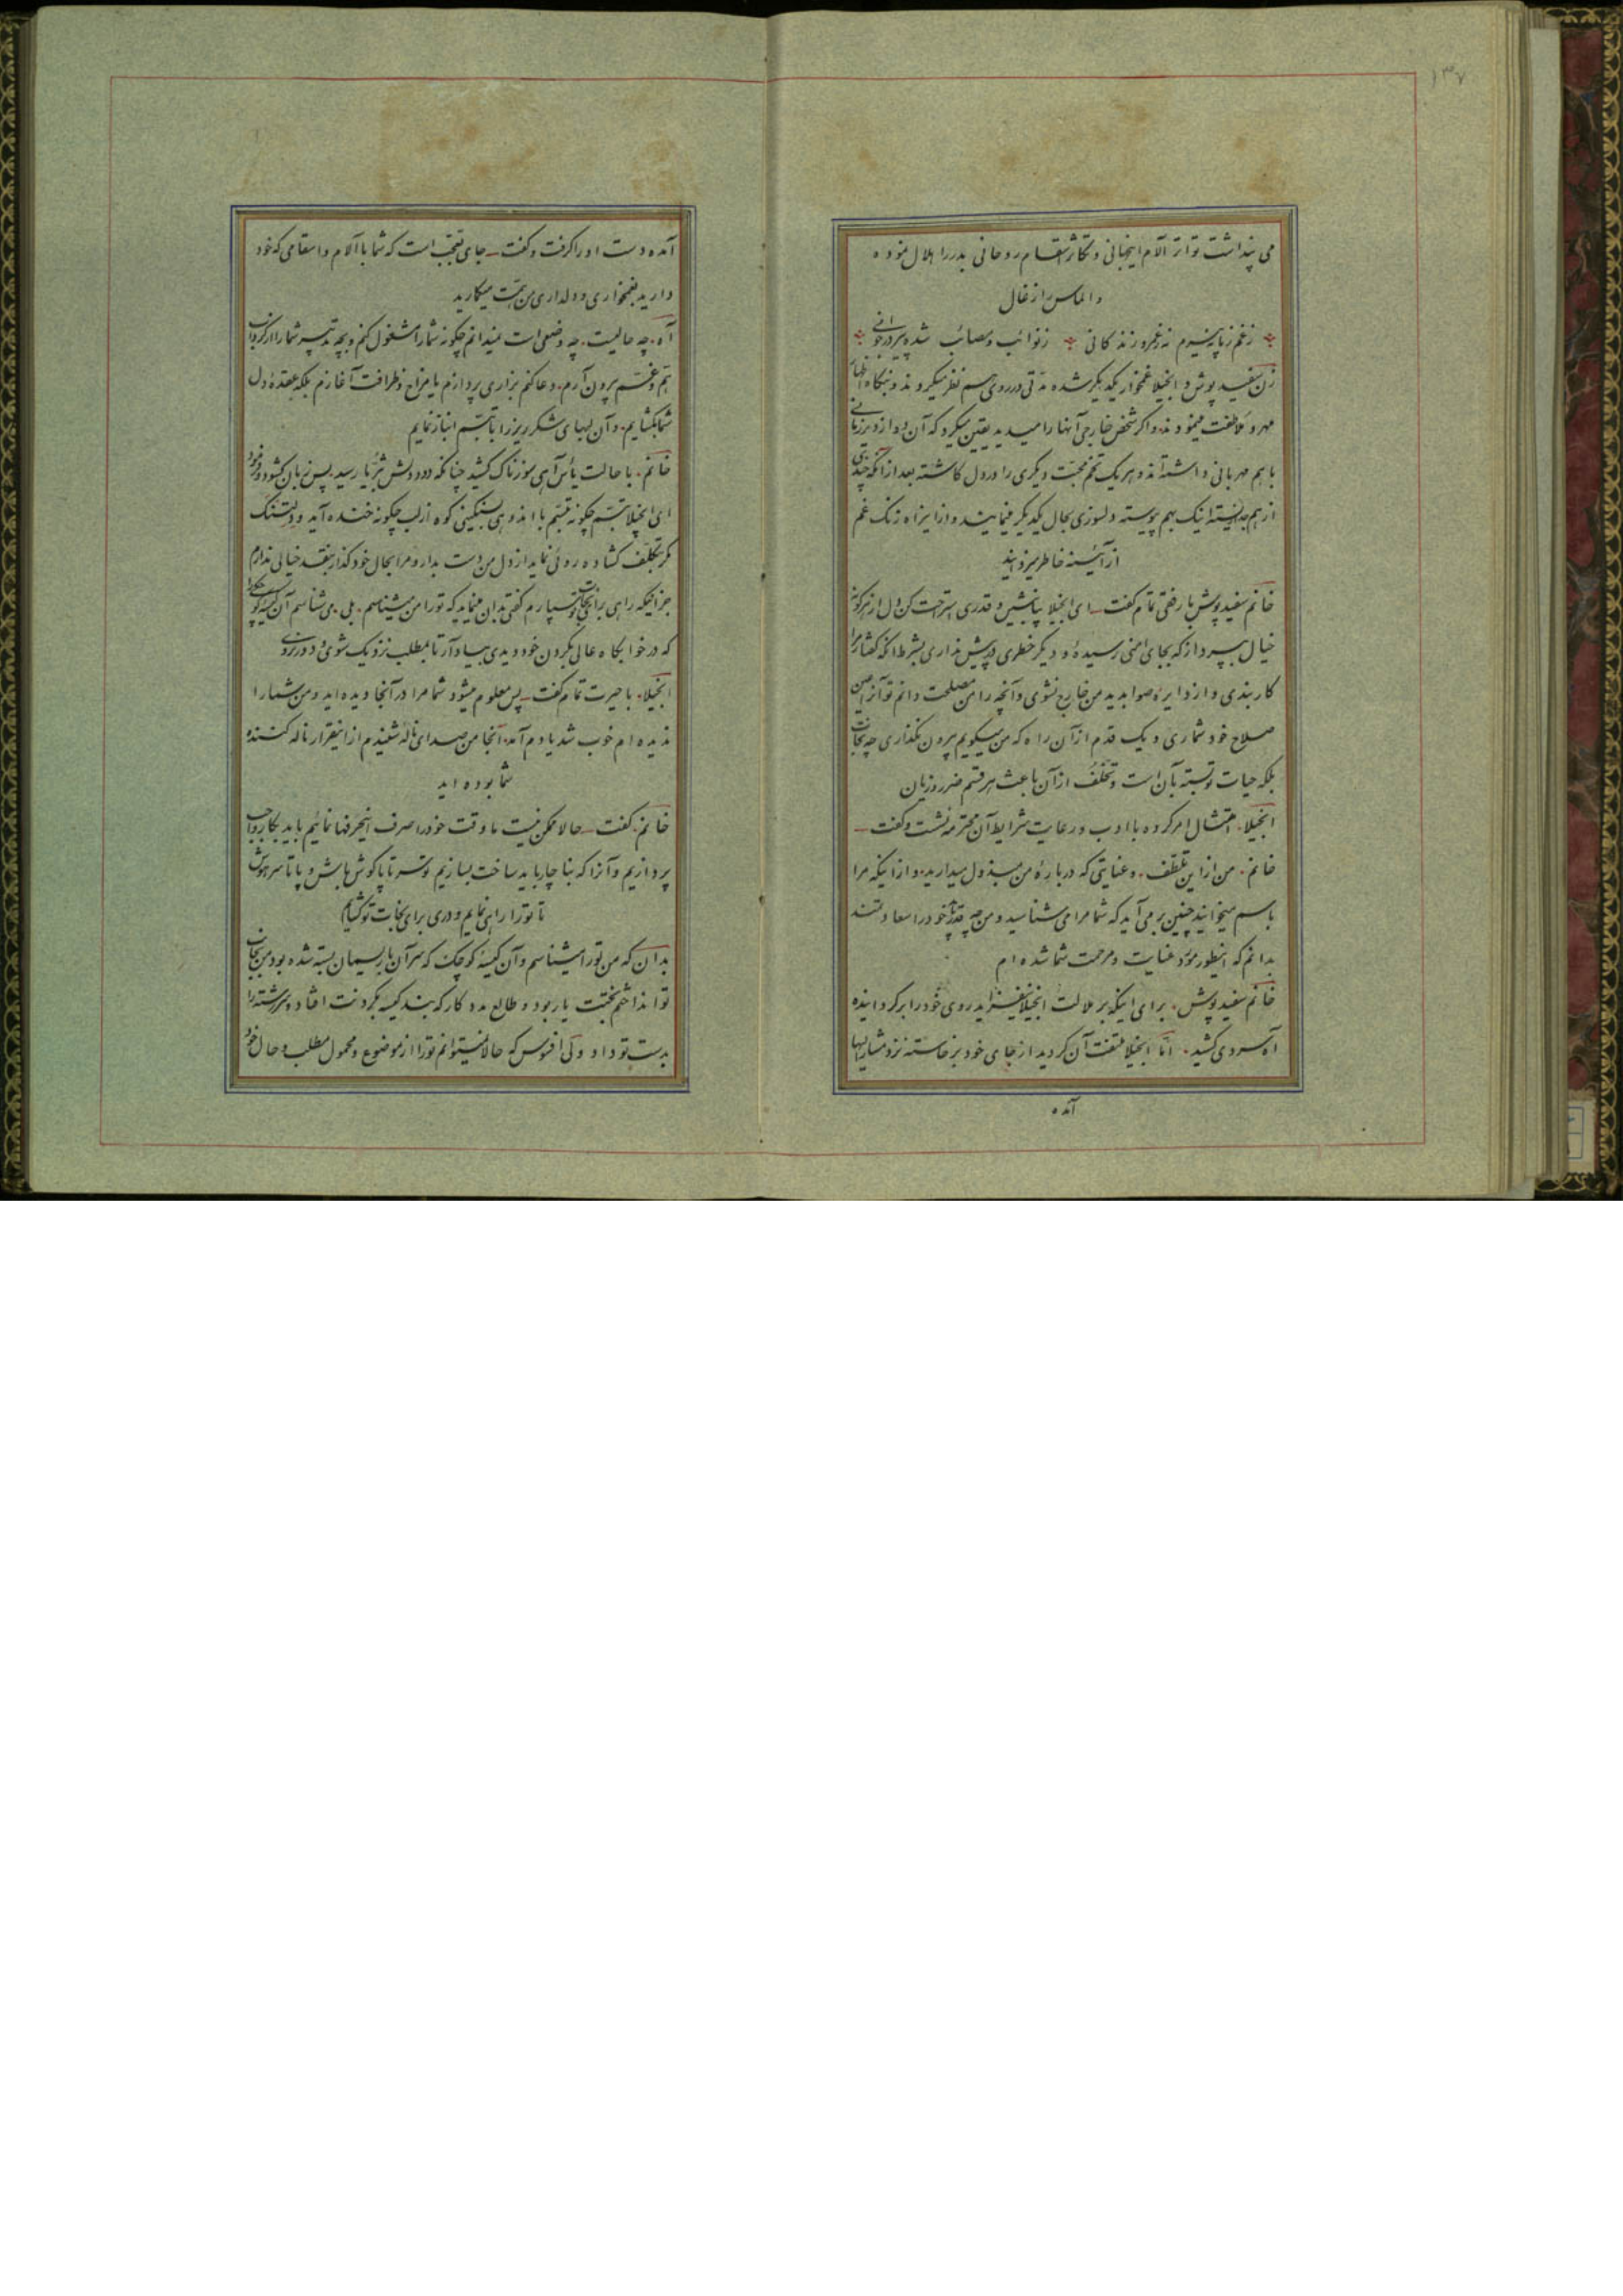 ۱۳۷
می پنداشت تواتر آلام اینجهانی و تکاثر اسقام روحانی بدر را هلال نموده
و الماس را زغال
ز غم زپا پیرم نه ز عمر و زندگانی ز نوائب و مصائب شده پیر در جوانی
زن سفید پوش و انجیلا غمخوار یکدیگر شده مدتی در روی هم نظر میکردند و نگاه
مهر و ملاطفت مینمودند و اگر شخص خارجی آنها را میدید یقین میکرد که آن دو از دیر زمانی
با هم مهربانی داشته‌اند و هر یک تخم محبت دیگری را در دل کاشته بعد از آنکه چندی
از هم جدا زیسته اینک بهم پیوسته دلسوزی بحال یکدیگر مینمایند و از این راه زنک غم
از آئینه خاطر میزدایند
خانم سفید پوش با رفق تمام گفت ای انجیلا بیا بنشین و قدری استراحت کن و دل از هرگونه
خیال بپرداز که بجای امنی رسیدهٔ و دیگر خطری در پیش نداری بشرط آنکه گفتار مرا
کار بندی و از دایره صوابدید من خارج نشوی و آنچه را من مصلحت دانم تو آنرا عین
صلاح خود شماری و یک قدم از آن راه که من میگویم بیرون نگذاری چه نجات
بلکه حیات تو بسته بآن است و تخلف از آن باعث هر قسم ضرر و زیان
انجیلا امتثال امر کرده با ادب و رعایت شرایط آن محترمه نشست و گفت
خانم من از این تلطف و عنایتی که در بارهٔ من مبذول میدارید و از اینکه مرا
باسم میخوانید چنین بر می آید که شما مرا می شناسید و من چه قدر باید خود را سعادتمند
بدانم که اینطور مورد عنایت و مرحمت شما شده ام
خانم سفید پوش برای اینکه بر ملالت انجیلا نیفزاید روی خود را برگردانیده
آه سردی کشید اما انجیلا ملتفت آن گردید از جای خود برخاسته نزد مشارالیها
آمده
آمده دست او را گرفت و گفت جای تعجب است که شما با آلام و اسقامی که خود
دارید بغمخواری و دلداری من همت میگمارید
آه چه حالیست چه وضعی است نمیدانم چگونه شما را مشغول کنم و بچه تدبیر شما را از گرداب
هم و غم بیرون آرم دعا کنم بزاری پردازم یا مزاح و ظرافت آغازم بلکه عقدهٔ دل
شما بگشایم و آن لبهای شکر ریز را با تبسم انباز نمایم
خانم با حالت یأس آهی سوزناک کشید چنانکه دود دلش بثریا رسید پس زبان گشود و فرمود
ای انجیلا تبسم چگونه تبسم با اندوهی بسنگینی کوه از لب چگونه خنده آید و دلتنگ
مگر بتکلف گشاده روئی نماید از دل من دست بدار و مرا بحال خود گذار بنقد خیالی ندارم
جز اینکه راهی برای نجات تو بسپارم گفتی بدان مینماید که تو را من میشناسم بلی می شناسم آن کیسه کوچک را
که در خوابگاه عالی بگردن خود دیدی بیاد آر تا بمطلب نزدیک شوی و دور نروی
انجیلا با حیرت تمام گفت پس معلوم میشود شما مرا در آنجا دیده اید و من شما را
ندیده ام خوب شد یادم آمد آنجا من صدای ناله شنیدم از اینقرار ناله کننده
شما بوده اید
خانم گفت حالا ممکن نیست ما وقت خود را صرف اینحرفها نمائیم باید بکار واجب
پردازیم و آنرا که بناچار باید ساخت بسازیم تو سر تا پا گوش باش و پا تا سر هوش
تا تو را راهی نمایم و دری برای نجات تو گشایم
بدان که من تو را میشناسم و آن کیسهٔ کوچک که سر آن با ریسمان بسته شده بود من بجانب
تو انداختم بختت یار بود و طالع مددکار که بند کیسه بگردنت افتاد و سر رشته را
بدست تو داد ولی افسوس که حالا نمیتوانم تو را از موضوع و محمول مطلب و حال خود